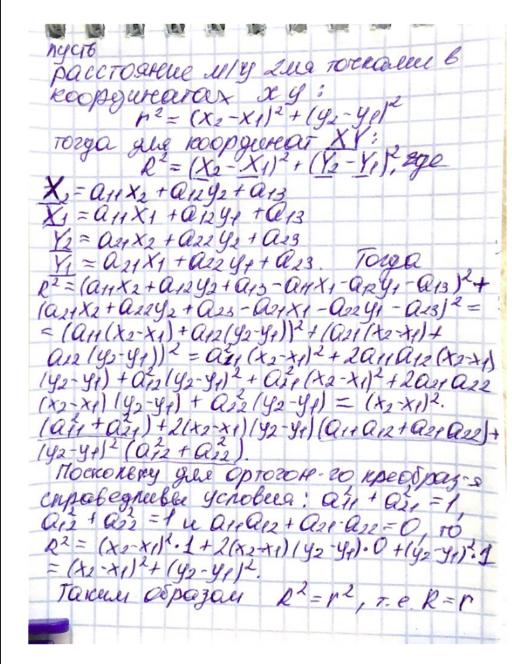 пусть
расстояние м/у 2мя точками в
координатах x y:
r² = (x₂-x₁)² + (y₂-y₁)²
тогда для координат XY:
R² = (X₂-X₁)² + (Y₂-Y₁)², где
X₂ = a₁₁x₂ + a₁₂y₂ + a₁₃
X₁ = a₁₁x₁ + a₁₂y₁ + a₁₃
Y₂ = a₂₁x₂ + a₂₂y₂ + a₂₃
Y₁ = a₂₁x₁ + a₂₂y₁ + a₂₃. Тогда
R² = (a₁₁x₂ + a₁₂y₂ + a₁₃ - a₁₁x₁ - a₁₂y₁ - a₁₃)² +
(a₂₁x₂ + a₂₂y₂ + a₂₃ - a₂₁x₁ - a₂₂y₁ - a₂₃)² =
= (a₁₁(x₂-x₁) + a₁₂(y₂-y₁))² + (a₂₁(x₂-x₁) +
a₁₂(y₂-y₁))² = a²₁₁(x₂-x₁)² + 2a₁₁a₁₂(x₂-x₁)
(y₂-y₁) + a²₁₂(y₂-y₁)² + a²₂₁(x₂-x₁)² + 2a₂₁a₂₂
(x₂-x₁)(y₂-y₁) + a²₂₂(y₂-y₁) = (x₂-x₁)²·
(a²₁₁ + a²₂₁) + 2(x₂-x₁)(y₂-y₁)(a₁₁a₁₂ + a₂₁a₂₂) +
(y₂-y₁)²(a²₁₂ + a²₂₂).
Поскольку для ортогон-го преобраз-я
справедливы условия: a²₁₁ + a²₂₁ = 1,
a²₁₂ + a²₂₂ = 1 и a₁₁a₁₂ + a₂₁·a₂₂ = 0, то
R² = (x₂-x₁)²·1 + 2(x₂-x₁)(y₂-y₁)·0 + (y₂-y₁)²·1
= (x₂-x₁)² + (y₂-y₁)².
Таким образом R² = r², т.е. R = r